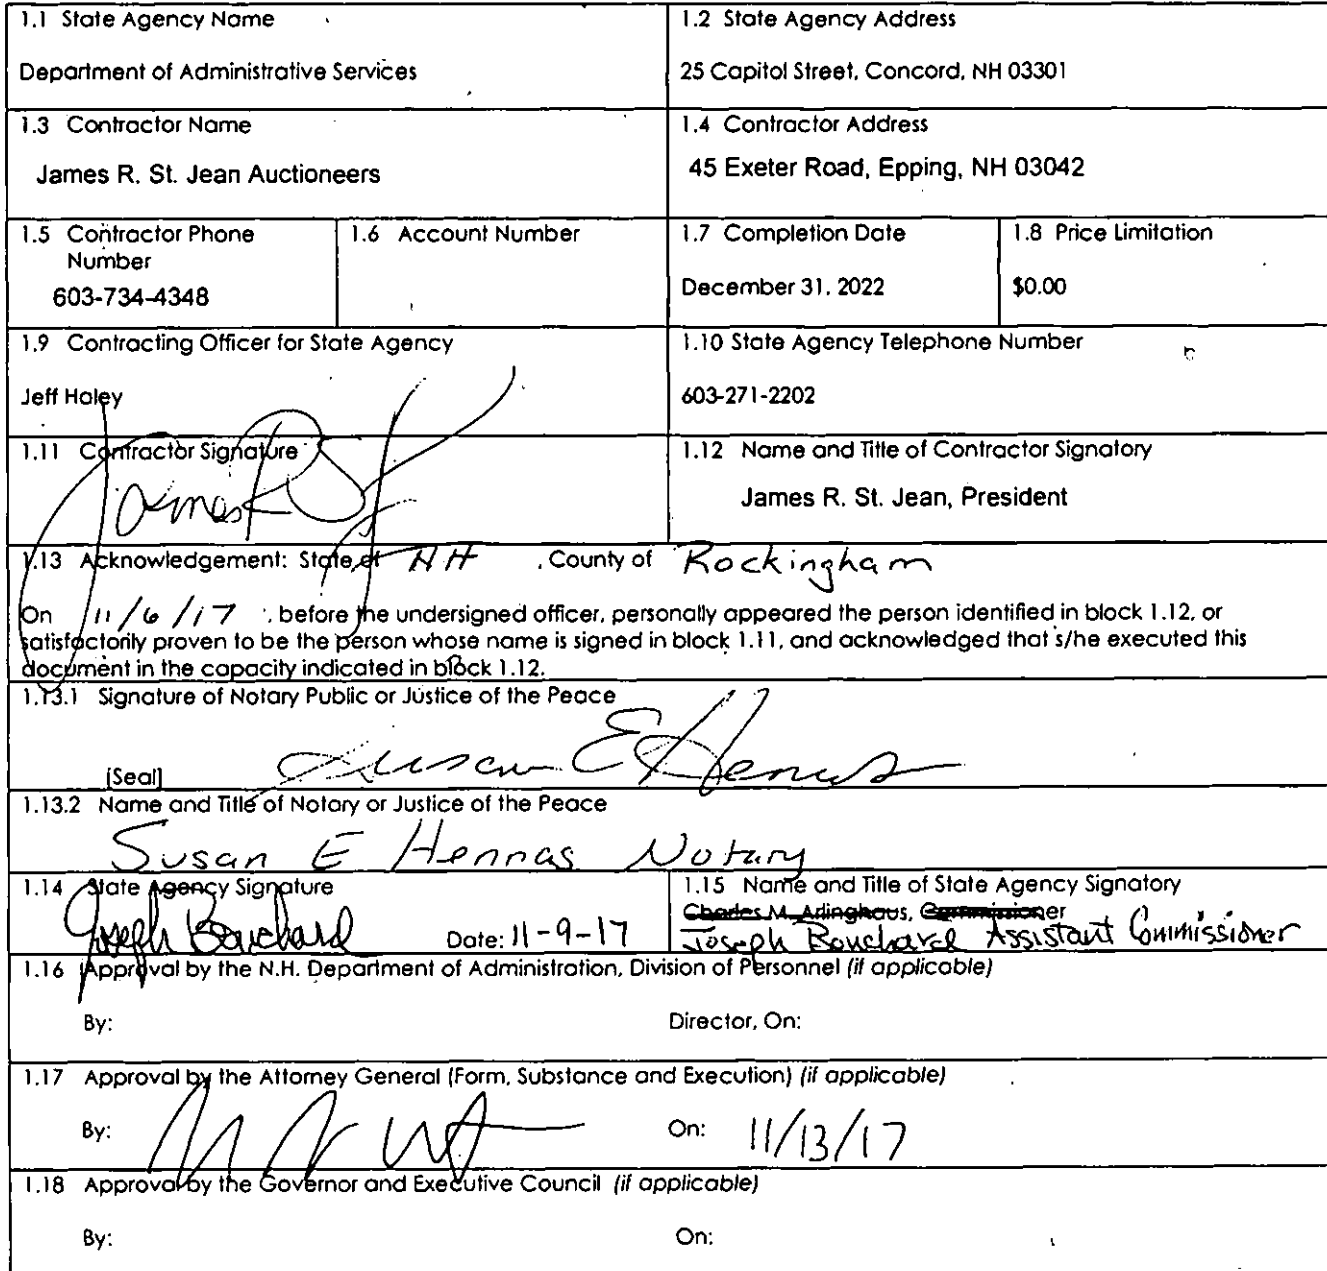 1.1 State Agency Name
Department of Administrative Services
1.2 State Agency Address
25 Capitol Street, Concord, NH 03301
1.3 Contractor Name
James R. St. Jean Auctioneers
1.4 Contractor Address
45 Exeter Road, Epping, NH 03042
1.5 Contractor Phone
Number
603-734-4348
1.6 Account Number
1.7 Completion Date
December 31, 2022
1.8 Price Limitation
$0.00
1.9 Contracting Officer for State Agency
Jeff Haley
1.10 State Agency Telephone Number
603-271-2202
1.11 Contractor Signature
James R St J
1.12 Name and Title of Contractor Signatory
James R. St. Jean, President
1.13 Acknowledgement: State of NH , County of Rockingham
On 11/6/17 , before the undersigned officer, personally appeared the person identified in block 1.12, or
satisfactorily proven to be the person whose name is signed in block 1.11, and acknowledged that s/he executed this
document in the capacity indicated in block 1.12.
1.13.1 Signature of Notary Public or Justice of the Peace
[Seal] Susan E Hennas
1.13.2 Name and Title of Notary or Justice of the Peace
Susan E Hennas Notary
1.14 State Agency Signature
Joseph Bouchard Date: 11-9-17
1.15 Name and Title of State Agency Signatory
Charles M. Arlinghaus, Commissioner
Joseph Bouchard Assistant Commissioner
1.16 Approval by the N.H. Department of Administration, Division of Personnel (if applicable)
By: Director, On:
1.17 Approval by the Attorney General (Form, Substance and Execution) (if applicable)
By: On: 11/13/17
1.18 Approval by the Governor and Executive Council (if applicable)
By: On: